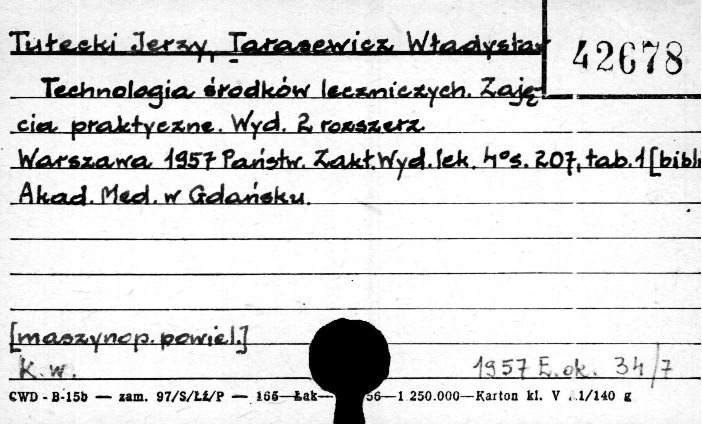 Tułecki Jerzy, Tarasewicz Władysław
42678
Technologia środków leczniczych. Zaję-
cia praktyczne. Wyd. 2 rozszerz.
Warszawa 1957 Państw. Zakł. Wyd. lek. 4° s. 207, tab. 1 [bibli
Akad. Med. w Gdańsku.
[maszynop. powiel.]
K. w. 1957 E. ok. 34/7
CWD - B-15b — zam. 97/S/Łź/P — 165—Łak— 56—1 250.000—Karton kl. V 1/140 g